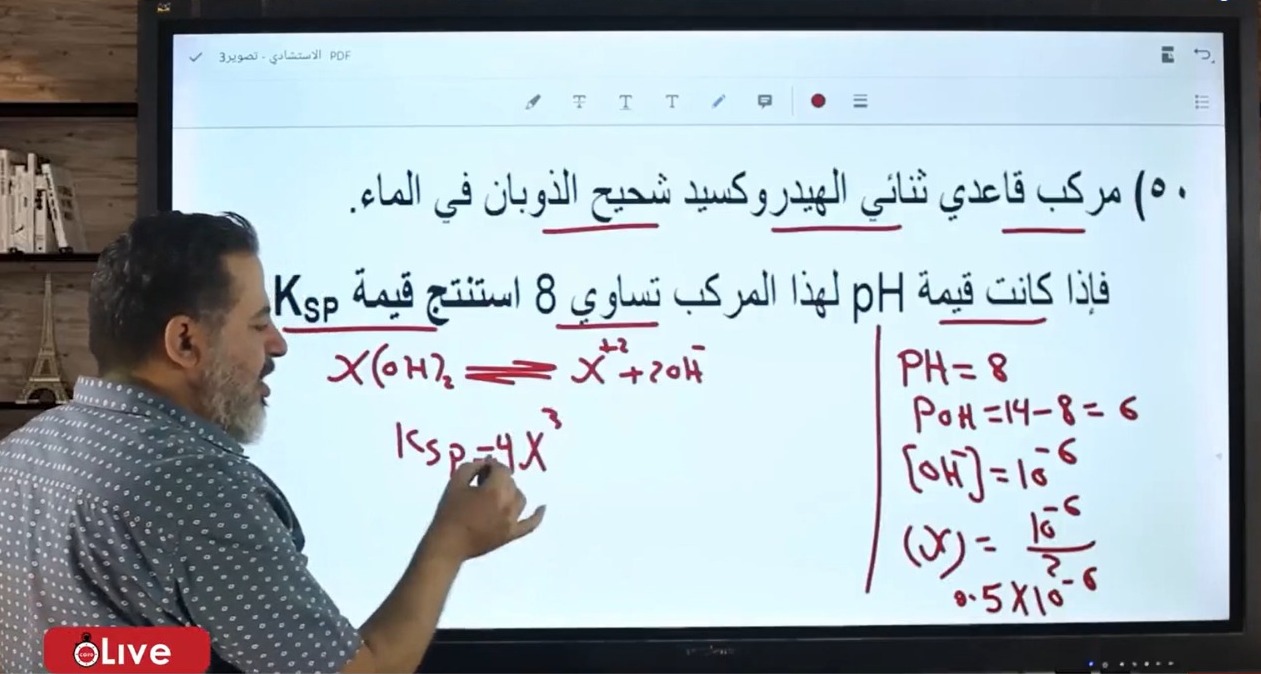 الاستشادي - تصوير3 PDF
٥٠) مركب قاعدي ثنائي الهيدروكسيد شحيح الذوبان في الماء.
فإذا كانت قيمة pH لهذا المركب تساوي 8 استنتج قيمة KSP
X(OH)₂ ⇌ X⁺² + 2OH⁻
Ksp = 4X³
PH = 8
POH = 14 - 8 = 6
[OH⁻] = 10⁻⁶
(X) = 10⁻⁶ / 2
0.5 X 10⁻⁶
Live